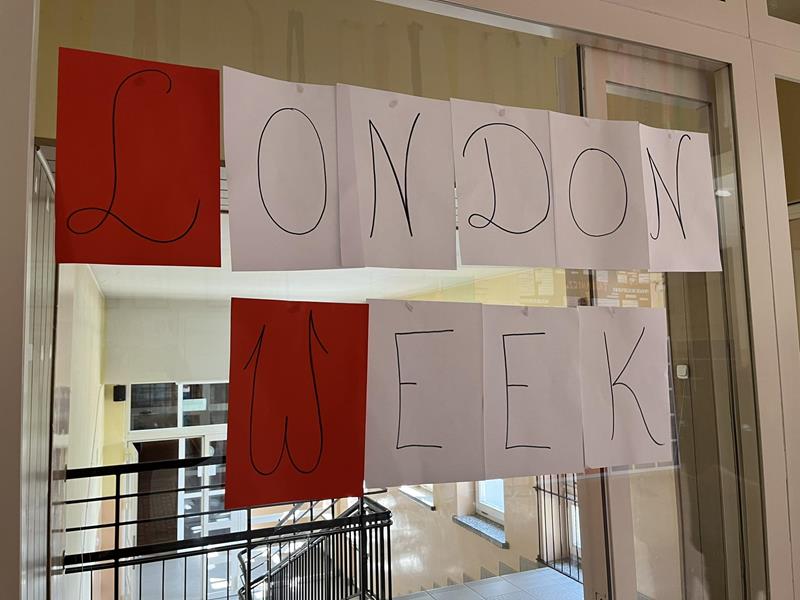 LONDON
WEEK